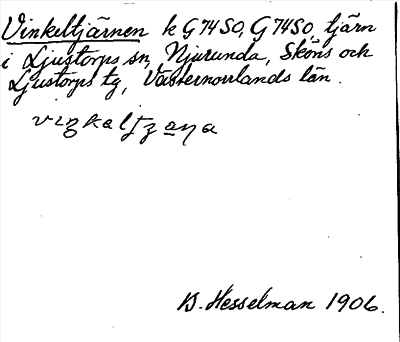 Vinkeltjärnen k G74SO, G74SO, tjärn
i Ljustorps sn, Njurunda, Sköns och
Ljustorps tg, Västernorrlands län.
B. Hesselman 1906.